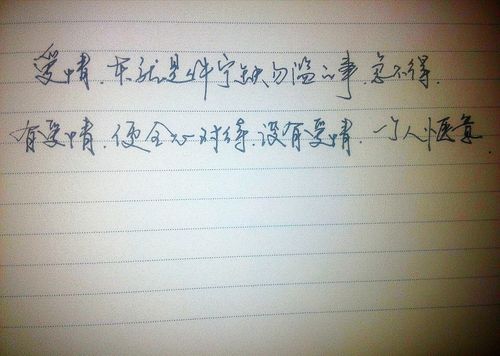 爱情.本就是件宁缺勿滥的事.急不得.
有爱情.便全心对待.没有爱情.一个人惬意.